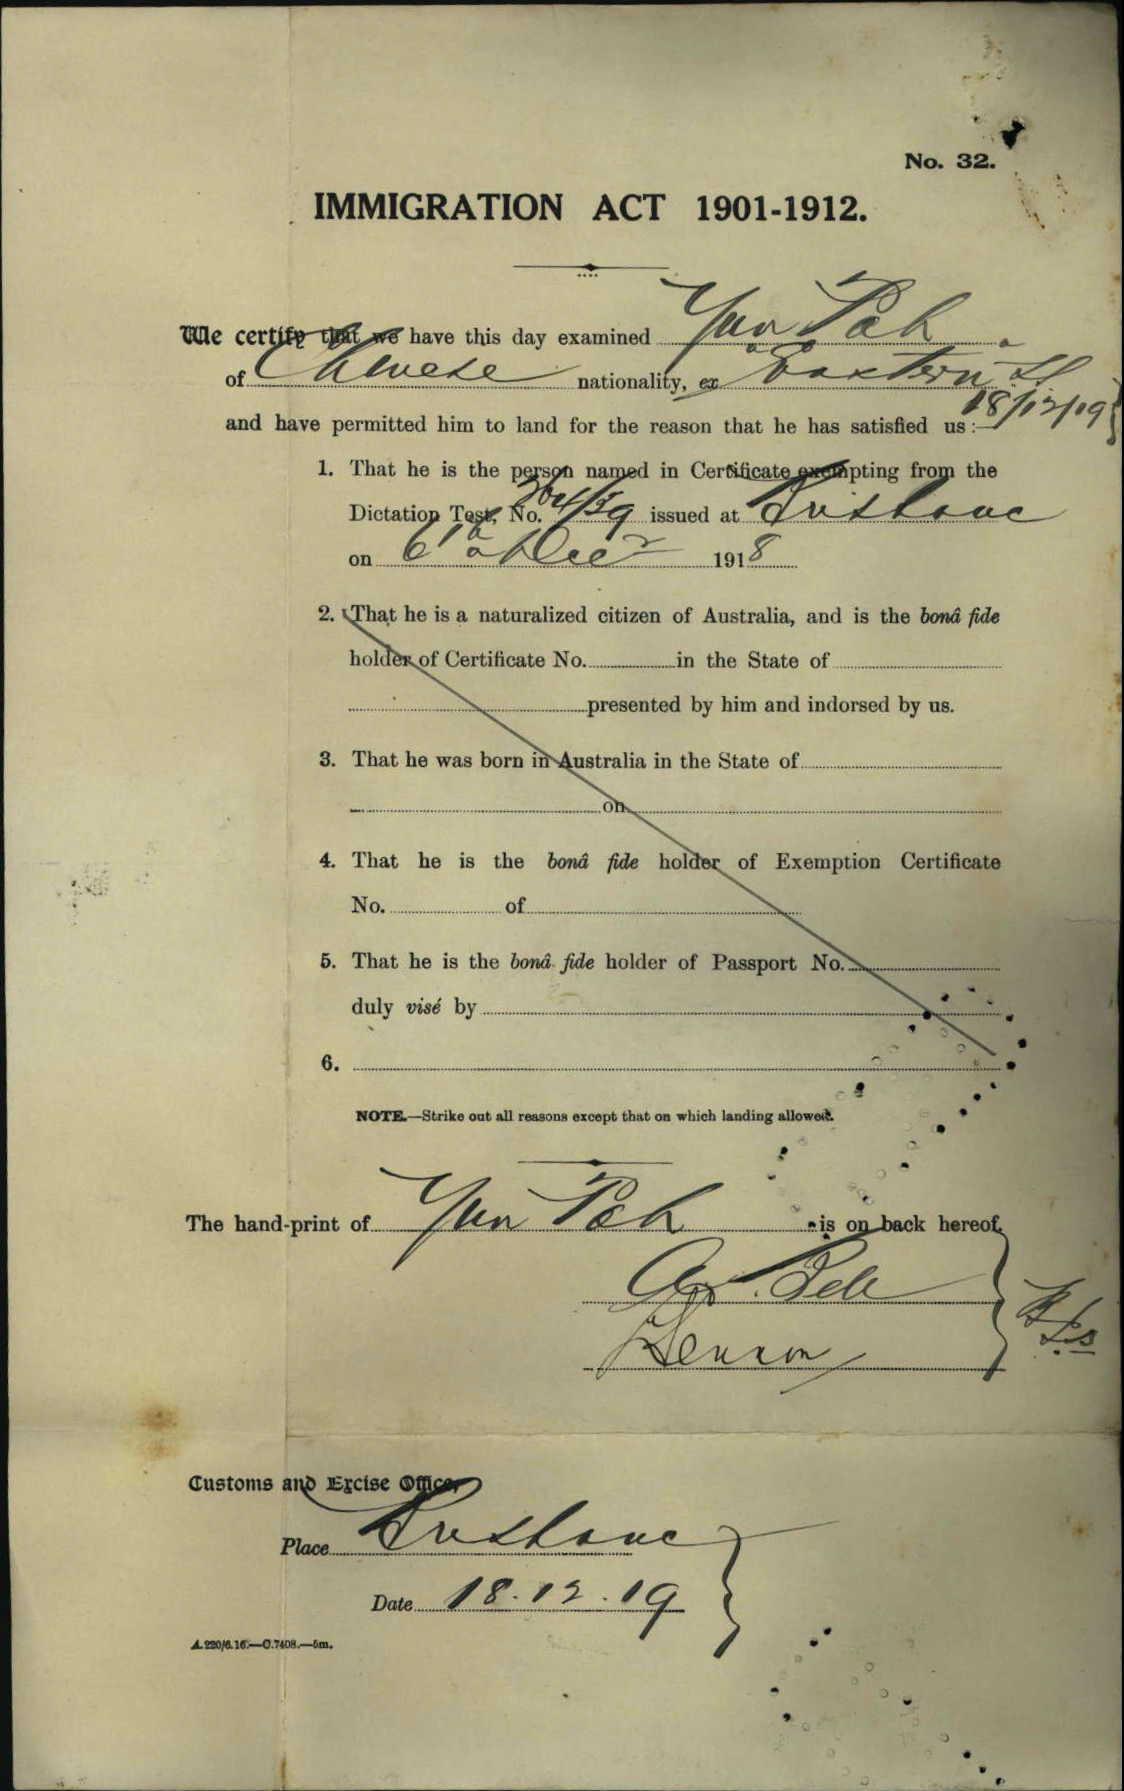 No. 32.
IMMIGRATION ACT 1901-1912.
We certify that we have this day examined Yun Pah
of Chinese nationality, ex Eastern
18/12/19
and have permitted him to land for the reason that he has satisfied us :—
1. That he is the person named in Certificate exempting from the
Dictation Test, No. 264/59 issued at Brisbane
on 6th Decr 1918
2. That he is a naturalized citizen of Australia, and is the bonâ fide
holder of Certificate No. in the State of
presented by him and indorsed by us.
3. That he was born in Australia in the State of
on
4. That he is the bonâ fide holder of Exemption Certificate
No. of
5. That he is the bonâ fide holder of Passport No.
duly visé by
6.
NOTE.—Strike out all reasons except that on which landing allowed.
The hand-print of Yun Pah is on back hereof.
Lennon
Customs and Excise Office,
Place Brisbane
Date 18.12.19
A.220/6.16.—C.7408.—5m.